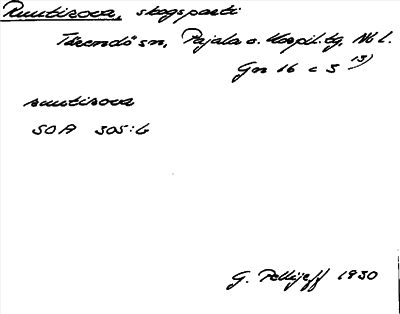 Ruutirova, skogsparti
Tärendö sn, Pajala o. Korpil. tg, Nb l.
Gen 16 c S 13)
ruutirova
SOA 305:6
G. Pellijeff 1930